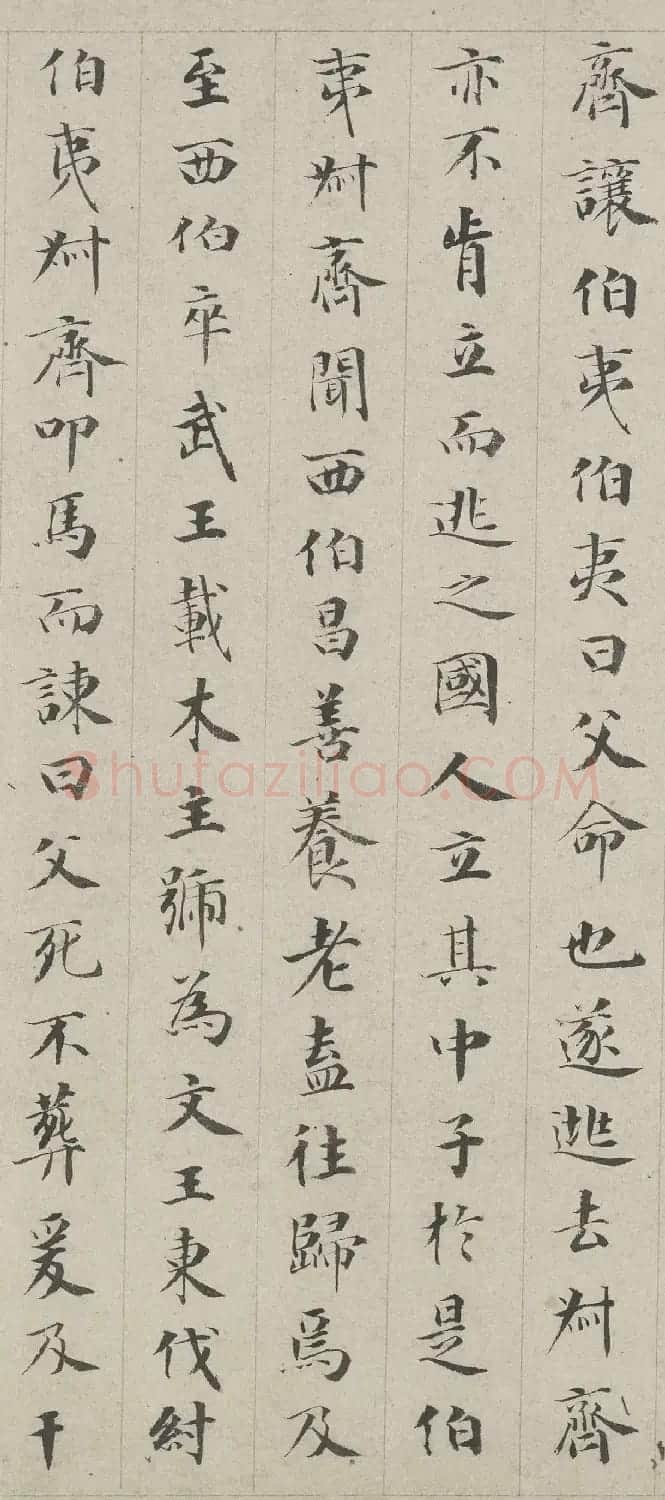 齊讓伯夷伯夷曰父命也遂逃去叔齊
亦不肯立而逃之國人立其中子於是伯
夷叔齊聞西伯昌善養老盍往歸焉及
至西伯卒武王載木主號為文王東伐紂
伯夷叔齊叩馬而諫曰父死不葬爰及干
Shufaziliao.COM